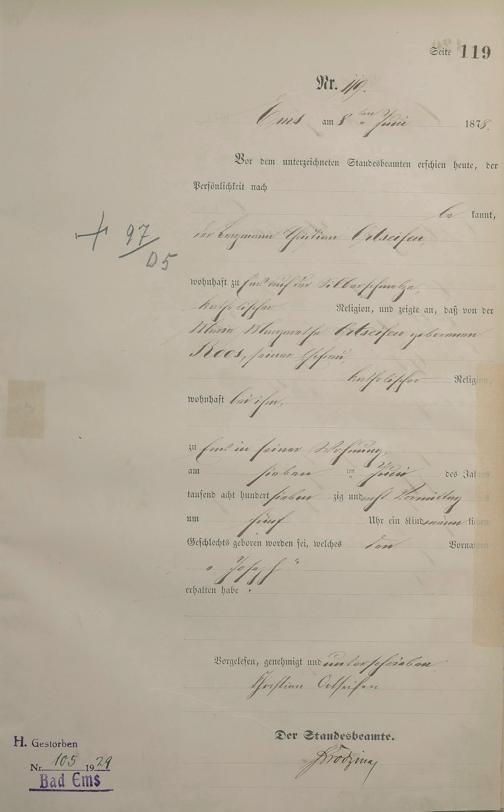 Seite 119
Nr. 119.
Ems am 8ten Juni 1878.
Vor dem unterzeichneten Standesbeamten erschien heute, der
Persönlichkeit nach
be kannt,
der Bergmann Christian Ortseifen
+ 97/
D5
wohnhaft zu Ems auf der Silberschmelze,
katholischer Religion, und zeigte an, daß von der
Maria Margaretha Ortseifen geborenen
Roos, seiner Ehefrau,
katholischer Religion,
wohnhaft bei ihm,
zu Ems in seiner Wohnung,
am sieben ten Juni des Jahres
tausend acht hundert sieben zig und acht Vormittag
um fünf Uhr ein Kind männlichen
Geschlechts geboren worden sei, welches den Vornamen
„Joseph“
erhalten habe.
Vorgelesen, genehmigt und unterschrieben
Christian Ortseifen
Der Standesbeamte.
H. Gestorben
Nr. 105 1929
Bad Ems